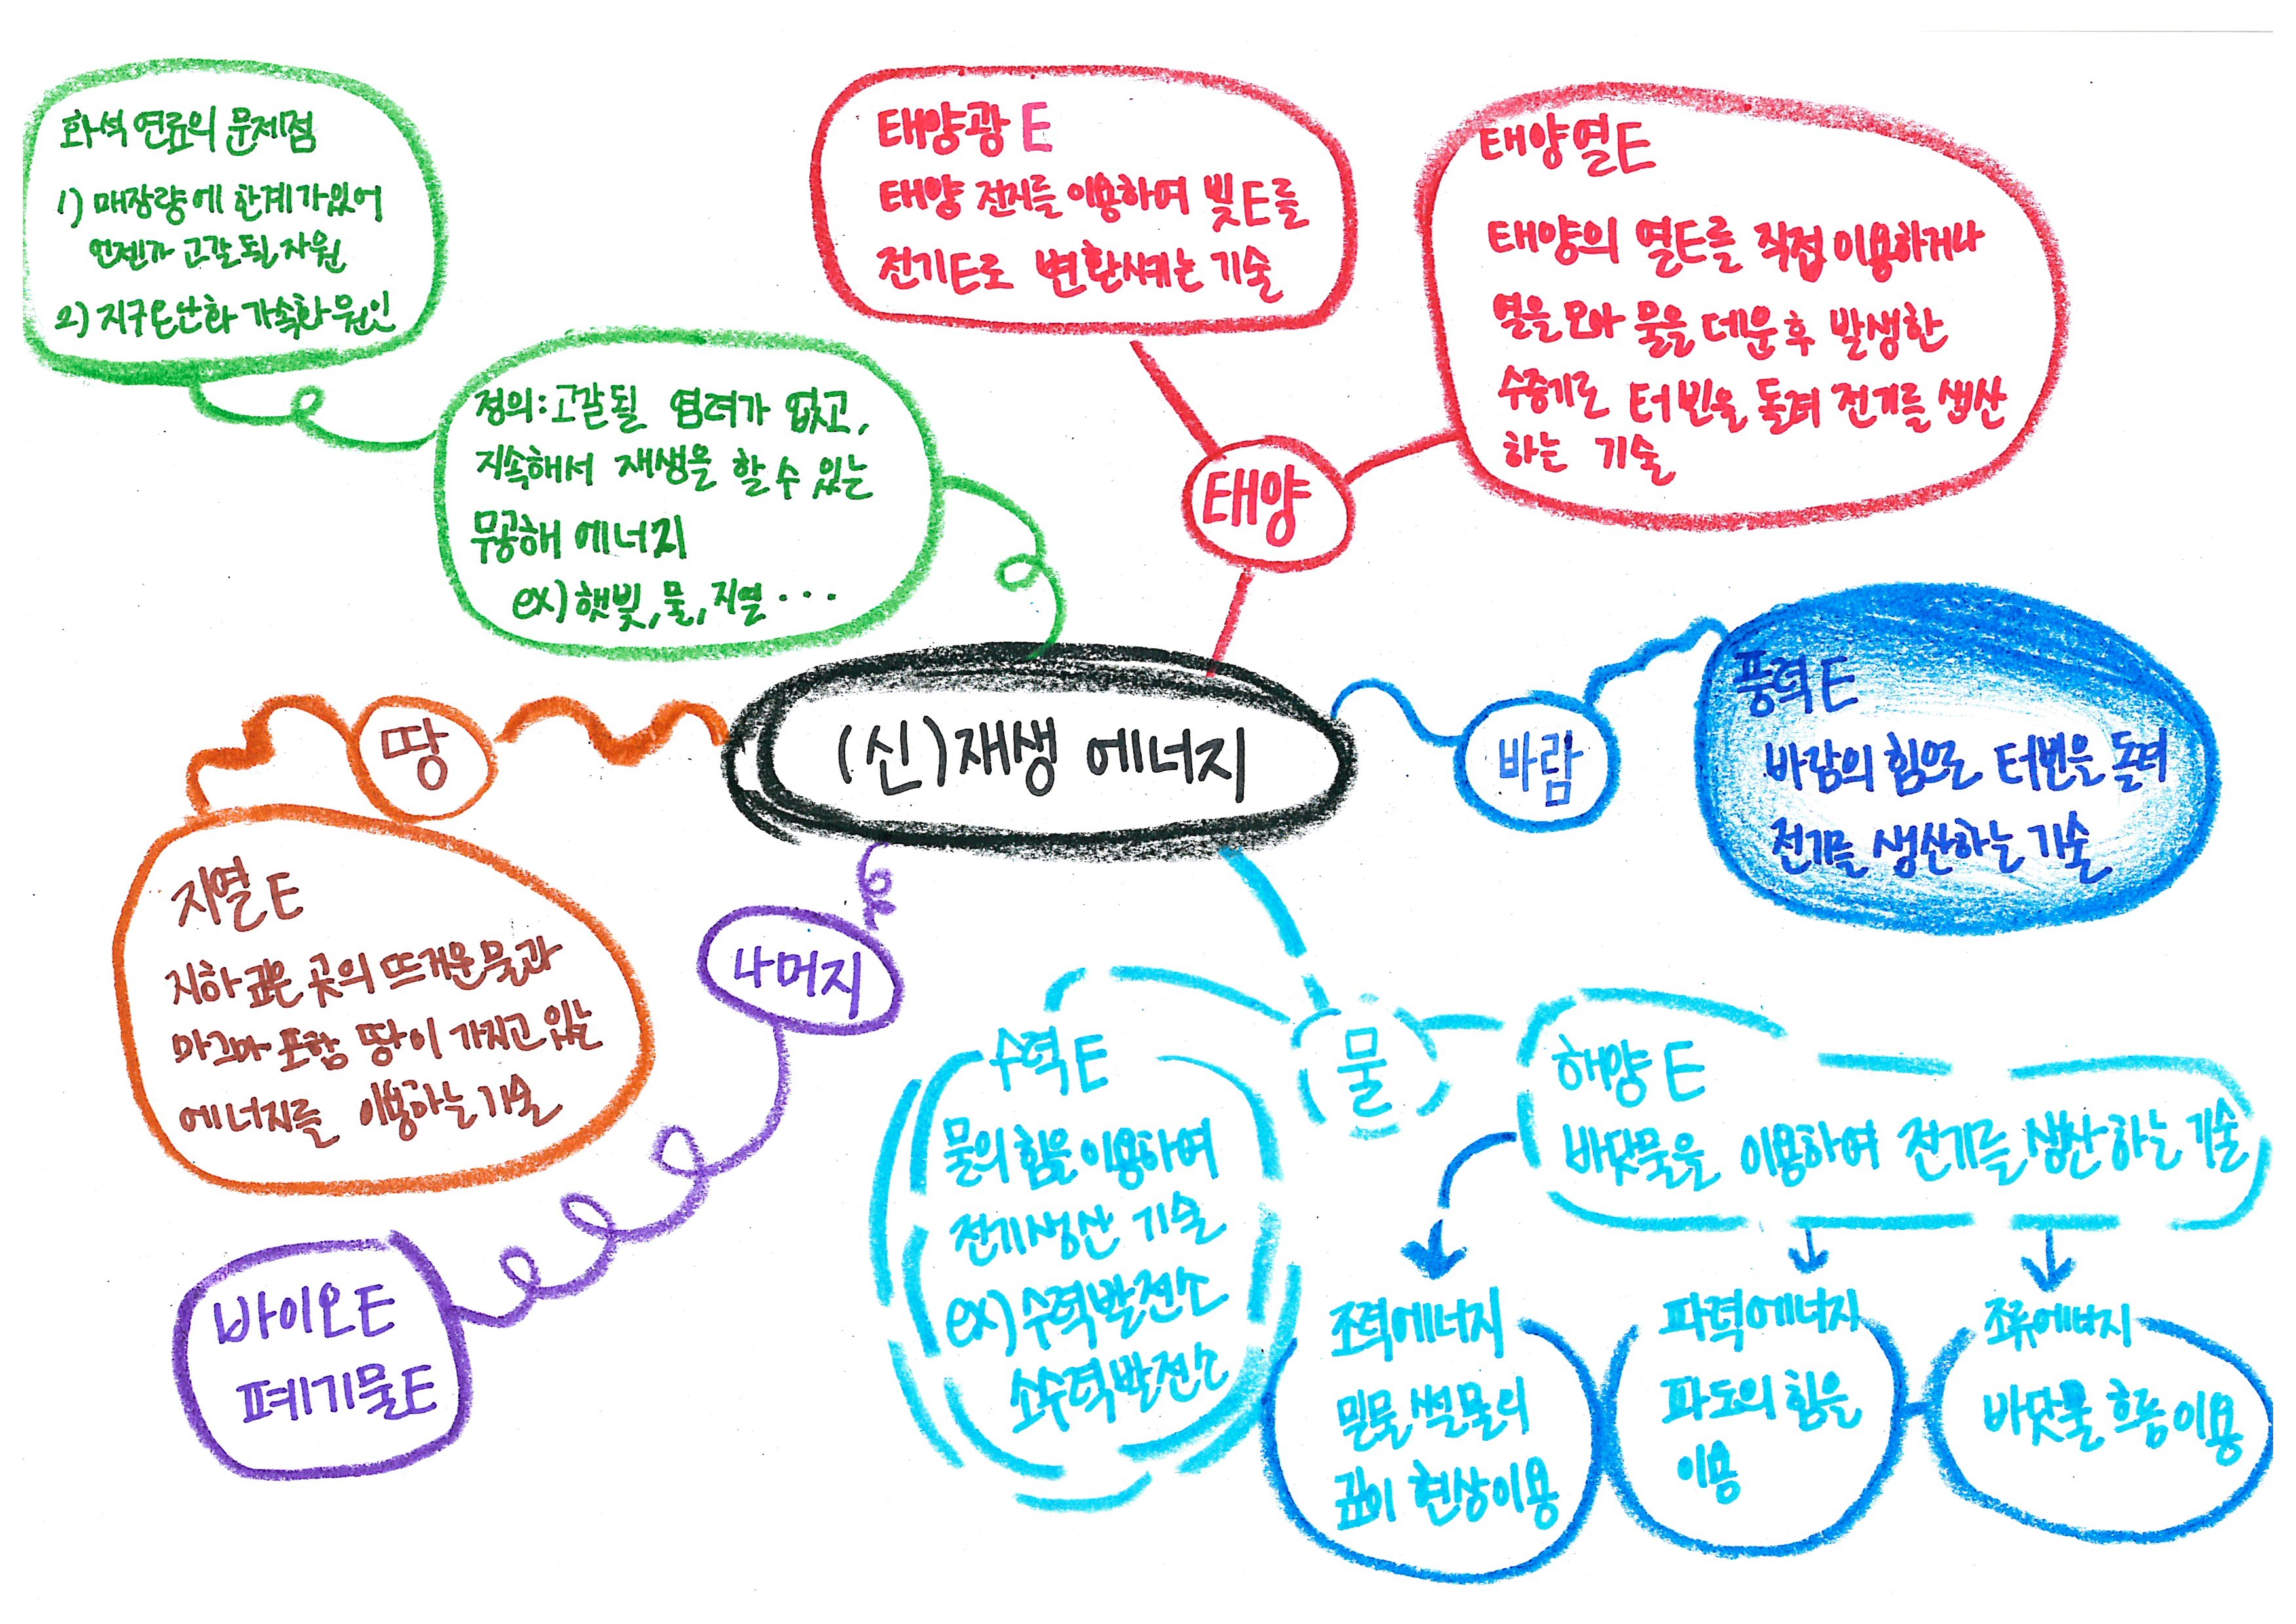 화석 연료의 문제점
1) 매장량에 한계가있어
언젠가 고갈될 자원
2) 지구온난화 가속화 원인
정의: 고갈될 염려가 없고,
지속해서 재생을 할 수 있는
무공해 에너지
ex) 햇빛, 물, 지열 ...
태양광 E
태양 전지를 이용하여 빛E를
전기E로 변환시키는 기술
태양열E
태양의 열E를 직접 이용하거나
열을 모아 물을 데운 후 발생한
수증기로 터빈을 돌려 전기를 생산
하는 기술
태양
(신)재생 에너지
바람
풍력E
바람의 힘으로 터빈을 돌려
전기를 생산하는 기술
땅
지열 E
지하 깊은 곳의 뜨거운 물과
마그마 포함 땅이 가지고 있는
에너지를 이용하는 기술
나머지
바이오E
폐기물E
물
수력 E
물의 힘을 이용하여
전기생산 기술
ex) 수력발전소
소수력발전소
해양 E
바닷물을 이용하여 전기를 생산하는 기술
조력에너지
밀물 썰물의
깊이 현상이용
파력에너지
파도의 힘을
이용
조류에너지
바닷물 흐름 이용